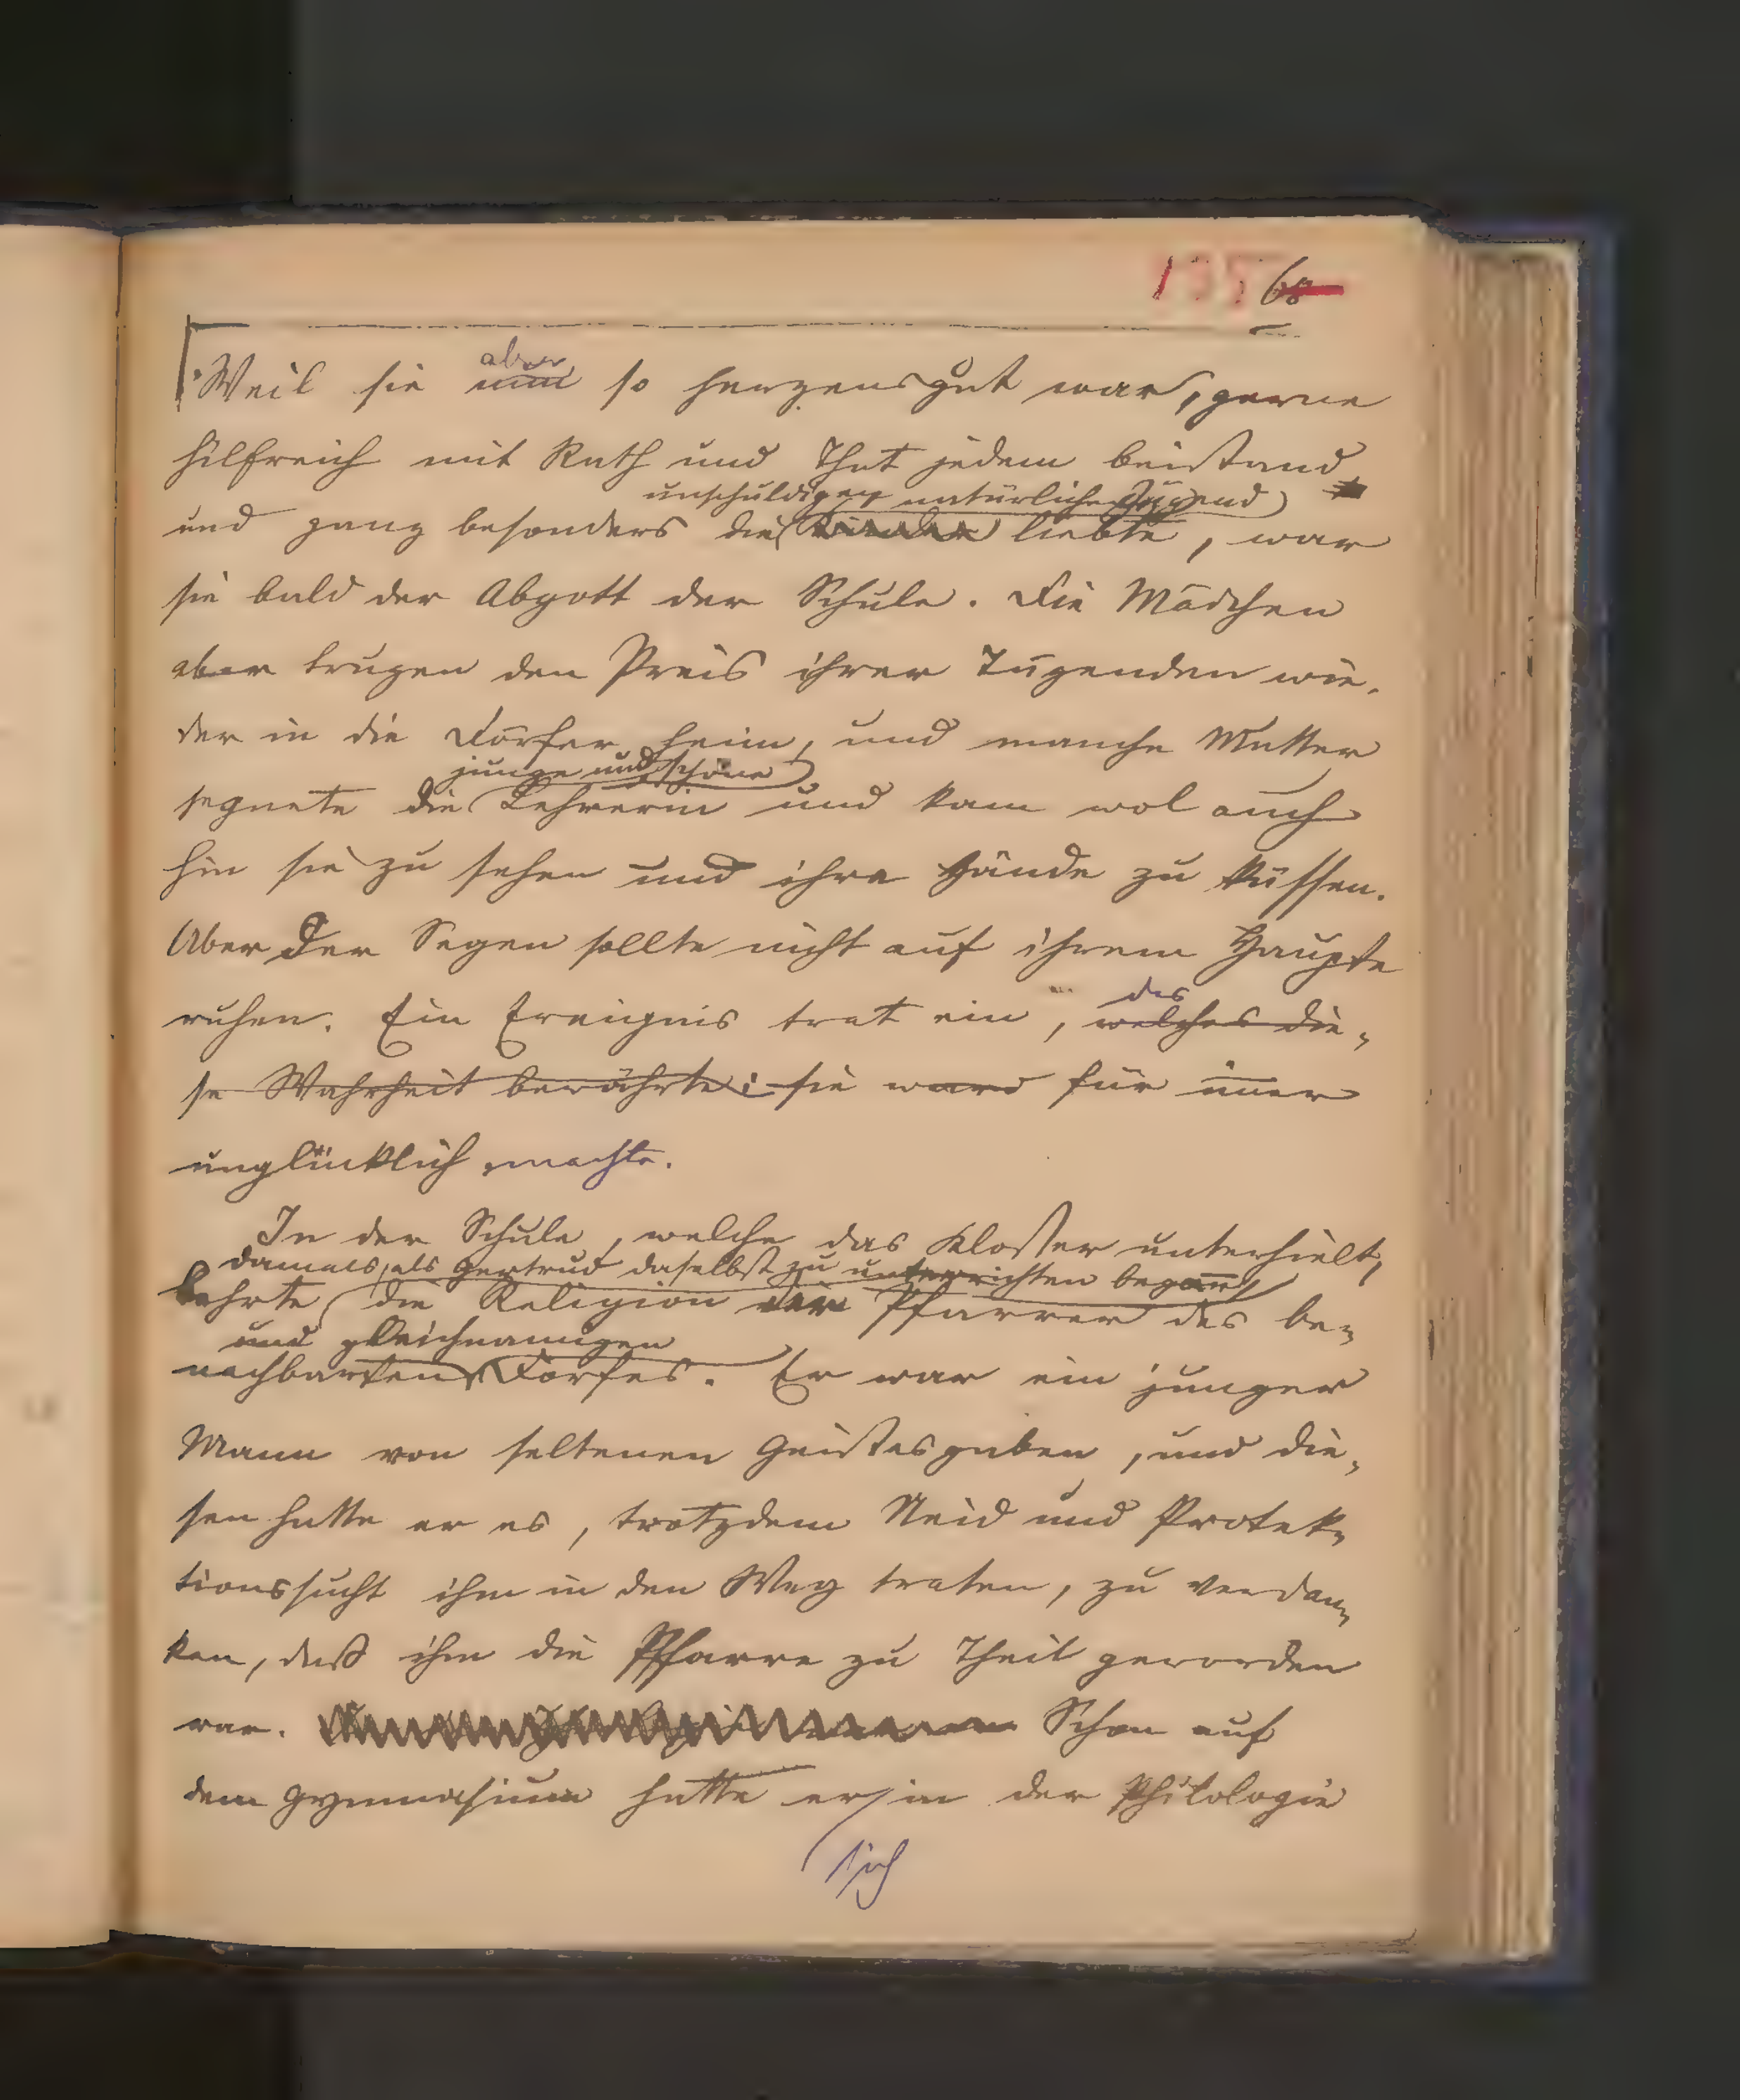 135 68
aber
Weil sie nun so herzensgut war, gerne
hilfreich mit Rath und That jedem beistand
unschuldigen natürliche Jugend
und ganz besonders die Kinder liebte, war
sie bald der Abgott der Schule. Die Mädchen
aber trugen den Preis ihrer Tugenden wie-
der in die Dörfer heim, und manche Mutter
junge und schöne
segnete die Lehrerin und kam wol auch
hin sie zu sehen und ihre Hände zu küssen.
Aber der Segen sollte nicht auf ihrem Haupte
das
ruhen. Ein Ereignis trat ein, welches die-
se Wahrheit bewährte: sie ward für im̅er
unglücklich machte.
In der Schule, welche das Kloster unterhielt,
damals, als Gertrud daselbst zu unterrichten began̅
lehrte die Religion der Pfarrer des be-
und gleichnamigen
nachbarten Dorfes. Er war ein junger
Mann von seltenen Geistesgaben, und die-
sen hatte er es, trotzdem Neid und Protek-
tionssucht ihm in den Weg traten, zu verdan-
ken, daß ihm die Pfarre zu Theil geworden
war. Schon auf
dem Gymnasium hatte er in der Philologie
sich